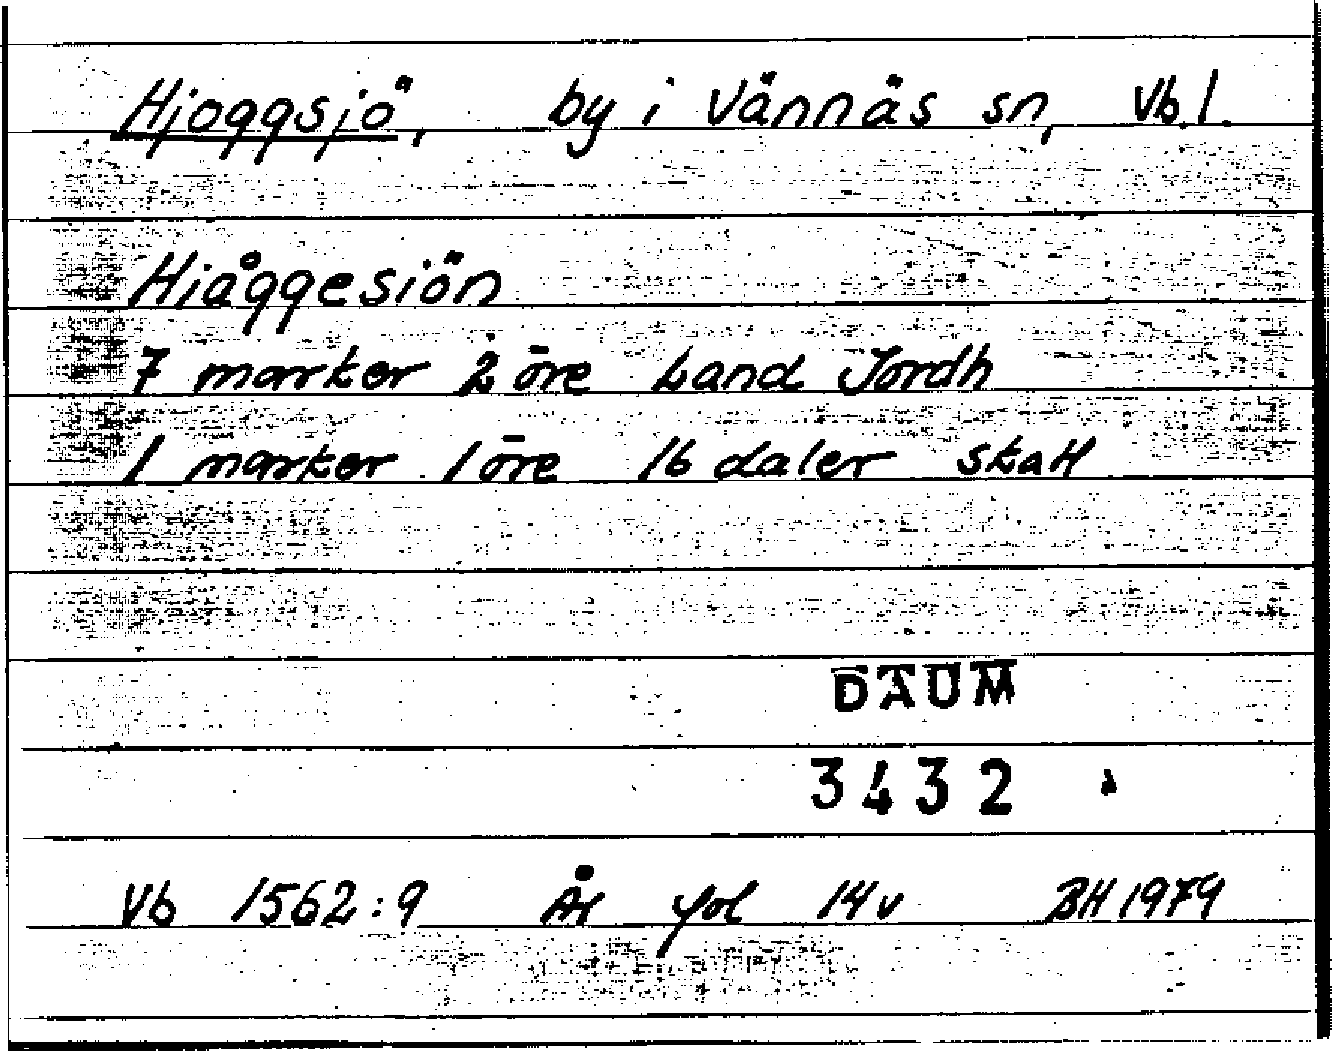 Hjoggsjö, by i Vännäs sn, Vb.l.
Hiåggesiön
7 marker 2 öre Land Jordh
1 marker 1 öre 16 daler skatt
DAUM
3432
Vb 1562:9 År fol 14v BH 1979